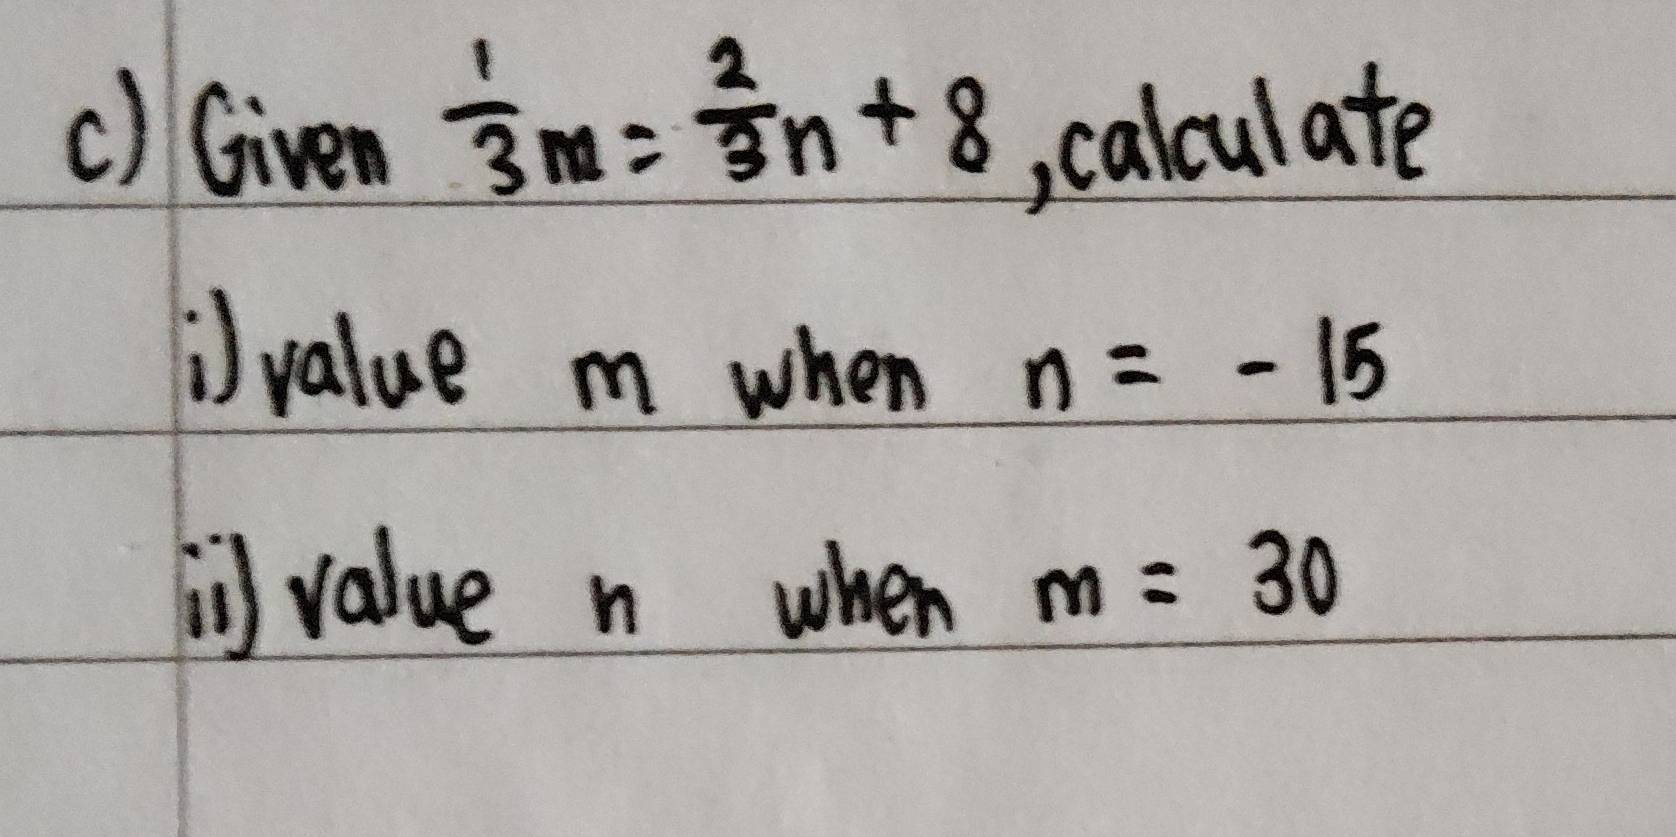 c) Given 1/3 m = 2/3 n + 8, calculate
i) value m when n = - 15
ii) value n when m = 30